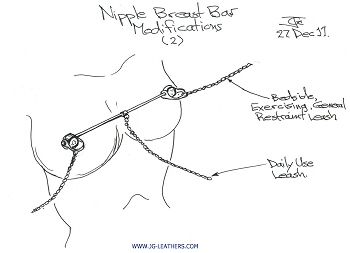 Nipple Breast Bar
Modifications
(2)
27 Dec 17.
Bedside,
Exercising, General
Restraint Leash
Daily Use
Leash.
WWW.JG-LEATHERS.COM